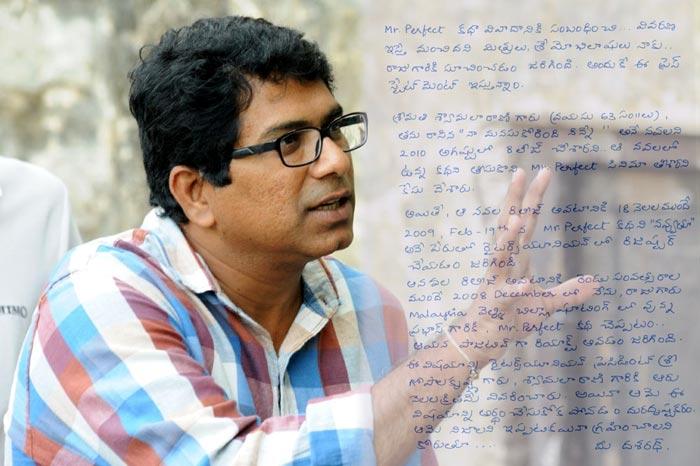 Mr. Perfect కథా వివాదానికి సంబంధించి... వివరణ
ఇస్తే మంచిదని మిత్రులు, శ్రేయోభిలాషులు నాకు..
రాజుగారికి సూచించడం జరిగింది. అందుకే ఈ ప్రెస్
స్టేట్‌మెంట్ ఇస్తున్నాం.
శ్రీమతి శ్యామలా రాణి గారు (వయసు 63 సం॥లు),
తను రాసిన "నా మనసు కోరింది నిన్నే" అనే నవలని
2010 ఆగష్టులో రిలీజ్ చేశారని.. ఆ నవలలో
ఉన్న కథని తీసుకొని Mr. Perfect సినిమా తీశారని
కేసు వేశారు.
అయితే, ఆ నవల రిలీజ్ అవటానికి 18 నెలల ముందే
2009, Feb - 19th న Mr. Perfect కథని "నవ్వుతూ"
అనే పేరుతో రైటర్స్ యూనియన్ లో రిజిష్టర్
చేయడం జరిగింది.
ఆ నవల రిలీజ్ అవటానికి రెండు సంవత్సరాల
ముందే 2008 December లో నేను, రాజుగారు
Malaysia వెళ్ళి బిల్లా షూటింగ్ లో వున్న
ప్రభాస్ గారికి, Mr. Perfect కథ చెప్పటం..
ఆయన పాజిటివ్ గా రియాక్ట్ అవడం జరిగింది.
ఈ విషయాన్ని రైటర్స్ యూనియన్ ప్రెసిడెంట్ శ్రీ
గోపాలకృష్ణ గారు, శ్యామలా రాణి గారికి ఆరు
నెలల క్రితమే వివరించారు. అయినా ఆమె ఈ
విషయాన్ని అర్థం చేసుకోక పోవడం దురదృష్టకరం.
ఆమె నిజాలని ఇప్పటికయినా గ్రహించాలని
కోరుతూ.... మీ దశరథ్.